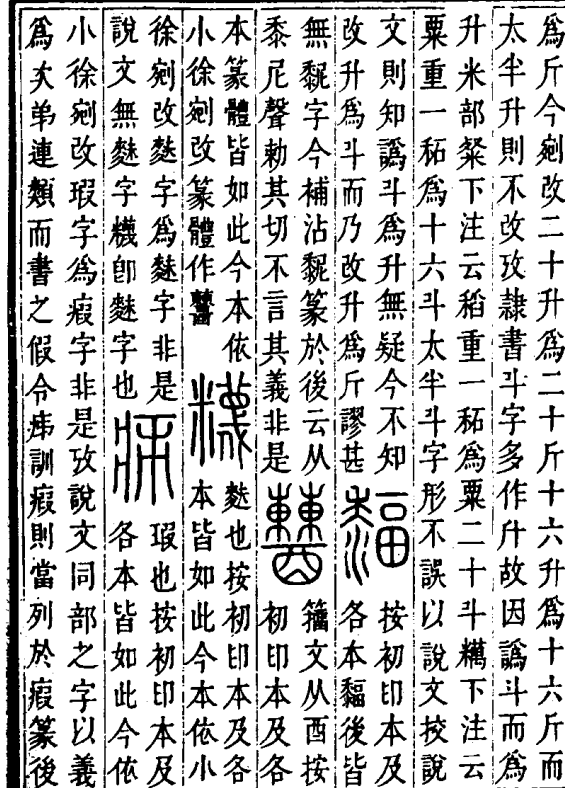 爲斤今剜改二十升爲二十斤十六升爲十六斤而
太半升則不改攷隸書斗字多作升故因譌斗而爲
升米部粲下注云稻重一䄷爲粟二十斗糲下注云
粟重一䄷爲十六斗太半斗字形不誤以說文挍說
文則知譌斗爲升無疑今不知
改升爲斗而乃改升爲斤謬甚
按初印本及
各本䵗後皆
無䵑字今補沾䵑篆於後云从
黍尼聲勅其切不言其義非是
籒文从酉按
初印本及各
本篆體皆如此今本依
小徐剜改篆體作
䴲也按初印本及各
本皆如此今本依小
徐剜改䴲字爲䴲字非是
說文無䴲字䊳卽䴲字也
瑕也按初印本及
各本皆如此今依
小徐剜改瑕字爲瘕字非是攷說文同部之字以義
爲次弟連類而書之假令㾁訓瘕則當列於瘕篆後